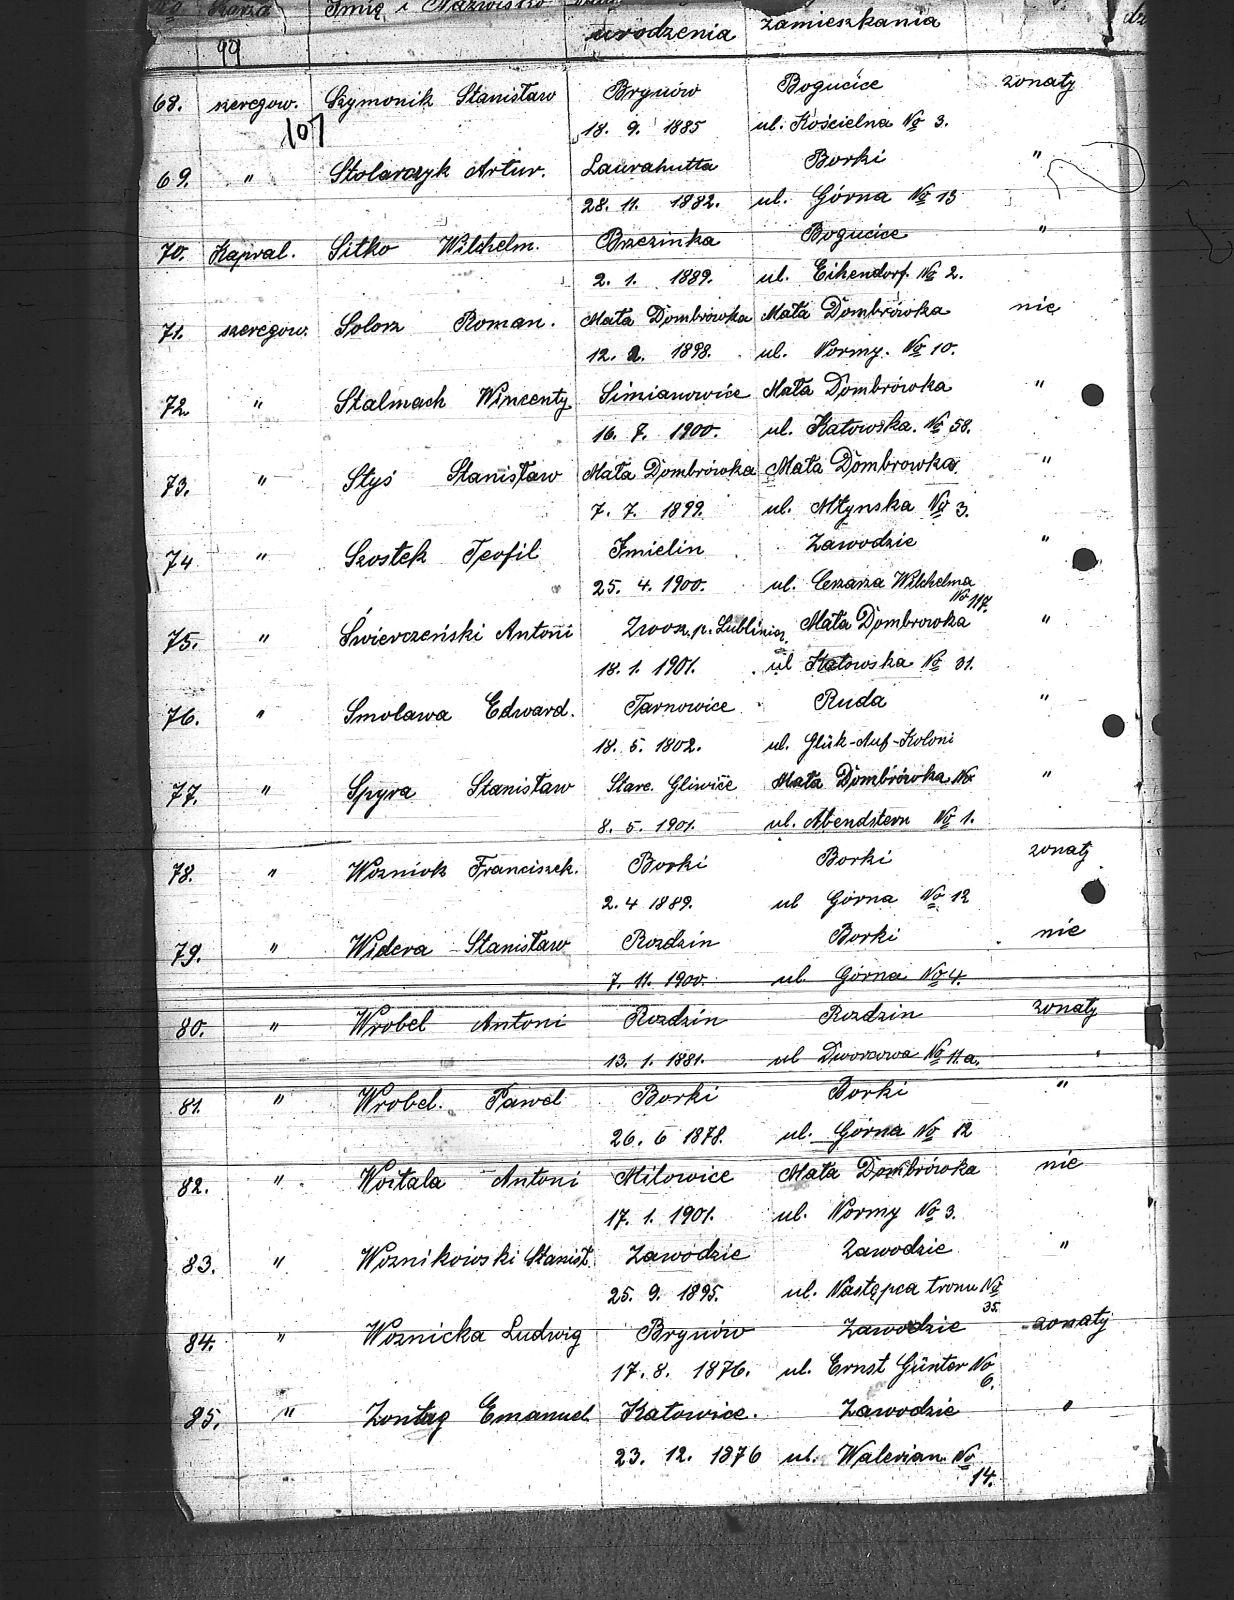 Imię i Nazwisko
99 urodzenia zamieszkania
68. szeregow. Szymonik Stanisław Brynów Bogucice zonaty
107 18. 9. 1885 ul. Kościelna No 3.
69. " Stolarczyk Artur. Laurahutta Borki "
28. 11. 1882. ul. Górna No 13
70. Kapral. Sitko Wilchelm. Brzezinka Bogucice "
2. 1. 1889. ul. Eikendorf. No 2.
71. szeregow. Solorz Roman. Mała Dombrówka Mała Dombrówka nie
12. 2. 1898. ul. Normy. No 10.
72. " Stalmach Wincenty Simianowice Mała Dombrówka "
16. 7. 1900. ul. Katowska. No 58.
73. " Styś Stanisław Mała Dombrówka Mała Dombrowka "
7. 7. 1899. ul. Młynska No 3.
74 " Szostek Teofil Imielin Zawodzie "
25. 4. 1900. ul. Cezarza Wilchelma
No 117.
75. " Świerczeński Antoni p. Lubliniec Mała Dombrowka "
18. 1. 1901. ul Katowska No 31.
76. " Smolawa Edward. Tarnowice Ruda "
18. 5. 1802. ul. Glük-Auf-Koloni
77. " Spyra Stanisław Stare. Gliwice Mała Dombrówka No "
8. 5. 1901. ul. Abendstern No 1.
78. " Wozniok Franciszek. Borki Borki zonaty
2. 4 1889. ul Górna No 12
79. " Widera Stanisław Rozdzin Borki nie
7. 11. 1900. ul Górna No 4.
80. " Wrobel Antoni Rozdzin Rozdzin zonaty
13. 1. 1881. ul Dworcowa No 11.a.
81. " Wrobel. Paweł Borki Borki "
26. 6 1878. ul. Górna No 12
82. " Woitala Antoni Milowice Mała Dombrówka nie
17. 1. 1901. ul. Normy No 3.
83. " Woznikowski Stanisł. Zawodzie Zawodzie "
25. 9. 1895. ul. Następca tronu No
35.
84. " Woznicka Ludwig Brynów Zawodzie zonaty
17. 8. 1876. ul. Ernst Günter No
6.
85. " Zontag Emanuel Katowice. Zawodzie "
23. 12. 1876 ul. Walerian. No
14.